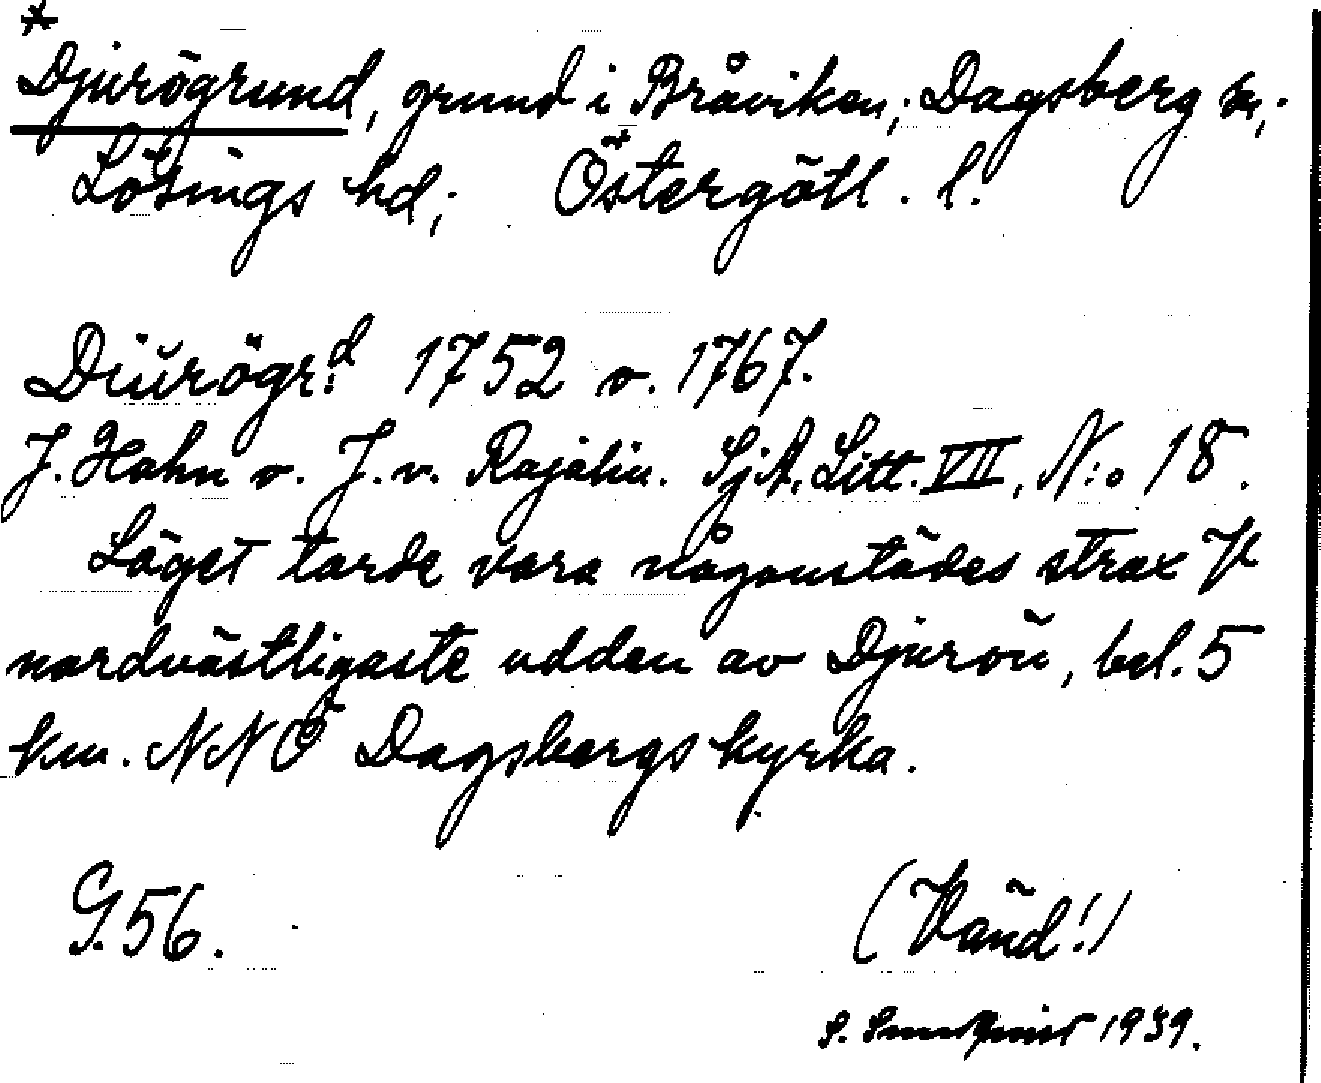 *
Djurögrund, grund i Bråviken; Dagsberg sn;
Lösings hd; Östergötl. l.
Diŭrögr:d 1752 o. 1767.
J. Hahn o. J. v. Rajalin. SjA. Litt. VII, N:o 18.
Läget torde vara någonstädes strax V
nordvästligaste udden av Djurön, bel. 5
km. NNÖ Dagsbergs kyrka.
G. 56.
(Vänd!)
S. 1939.